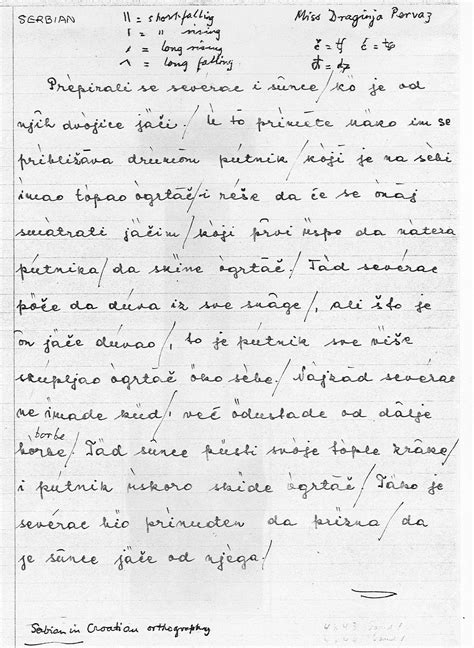 SERBIAN
ȍ = short falling
ò = " rising
ó = long rising
ȏ = long falling
Miss Draginja Pervaz
č = tʃ ć = tɕ
Prèpirali se sevérac i sûnce / kȍ je od
njîh dvòjice jȁčī. / U tô priméte nȅko im se
približáva drúmom pútnik / kòjī je na sèbi
ìmao tòpao ogŕtāč / i réše da će se ònāj
smátrati jȁčim / kòjī pr̂vī ȕspe da nátera
pútnika / da skȋne ogŕtāč. / Tȁd sevérac
pȍče da dúva iz sve snâge /, ali štȍ je
ȏn jȁče dúvao /, to je pútnik sve vȉše
skúpljao ogŕtāč òko sèbe. / Nâjzād sevérac
ne ìmade kȕd /, već òdustade od dâlje
borbe
bòrbe. / Tȁd sûnce pȕsti svòje tòple zráke /
i pútnik ùskoro skȋde ogŕtāč. / Tȁko je
sevérac bio prìnuđen da prìzna / da
je sûnce jȁče od njèga. /
Serbian in Croatian orthography